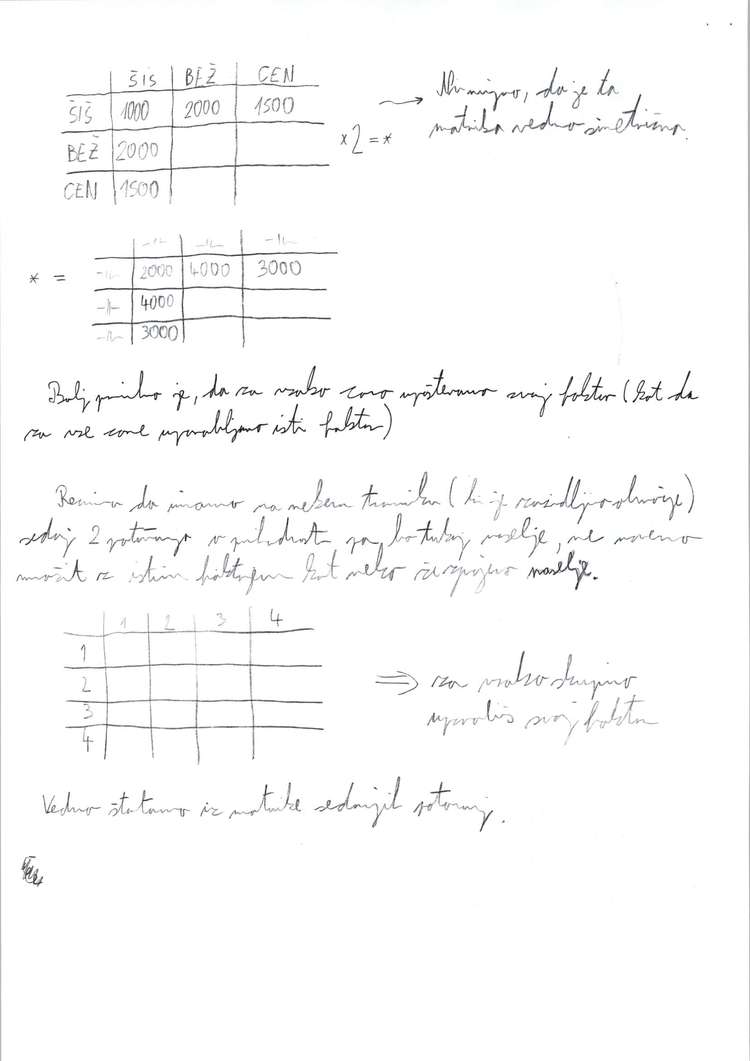 ŠIŠ BEŽ CEN
ŠIŠ 1000 2000 1500
BEŽ 2000
CEN 1500
x 2 = *
→ Ni nujno, da je ta
matrika vedno simetrična.
* =
-||- -||- -||-
-||- 2000 4000 3000
-||- 4000
-||- 3000
Bolj je, da za vsako cono upoštevamo svoj faktor (kot da
za vse cone uporabljamo isti faktor)
Recimo da imamo na nekem travniku (ki je območje)
sedaj 2 potovanja v prihodnosti pa bo tukaj naselje, ne moremo
množit z istim faktorjem kot neko že naselje.
1 2 3 4
1
2
3
4
⇒ za vsako skupino
uporabiš svoj faktor
Vedno štartamo iz matrike sedanjih potovanj.